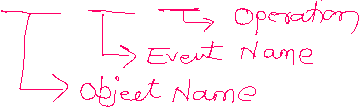 Operation
Event Name
Object Name